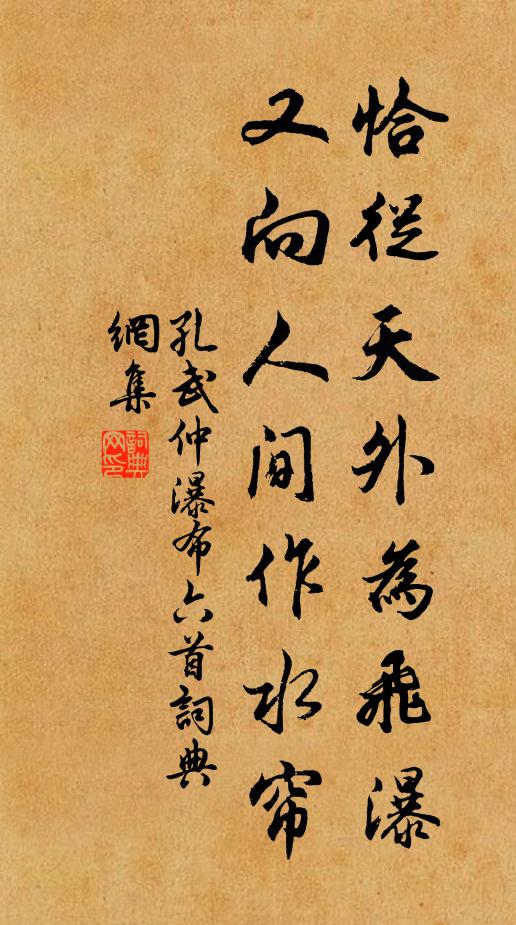 恰從天外為飛瀑
又向人間作水帘
孔武仲瀑布六首詞典
網集
詞典
网印